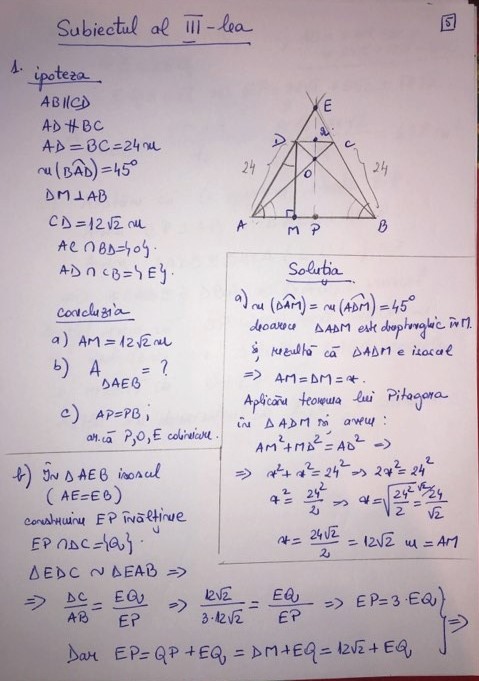 Subiectul al III-lea
5
1. ipoteza
AB∥CD
AD ∦ BC
AD = BC = 24 m
m(BAD) = 45°
DM ⊥ AB
CD = 12√2 m
AC ∩ BD = {O}.
AD ∩ CB = {E}.
concluzia
a) AM = 12√2 m
b) A ΔAEB = ?
c) AP = PB;
ar. că P, O, E coliniare.
E
D
Q
C
24
O
24
A
M
P
B
Soluția
a) m(DAM) = m(ADM) = 45°
deoarece ΔADM este dreptunghic în M.
și, rezultă că ΔADM e isoscel
=> AM = DM = x.
Aplicăm teorema lui Pitagora
în ΔADM și avem:
AM² + MD² = AD² =>
=> x² + x² = 24² => 2x² = 24²
x² = 24²/2 => x = √(24²/2) = 24/√2
x = 24√2/2 = 12√2 m = AM
b) În ΔAEB isoscel
(AE = EB)
construim EP înălțime
EP ∩ DC = {Q}.
ΔEDC ~ ΔEAB =>
=> DC/AB = EQ/EP => 12√2/3·12√2 = EQ/EP => EP = 3·EQ } =>
Dar EP = QP + EQ = DM + EQ = 12√2 + EQ